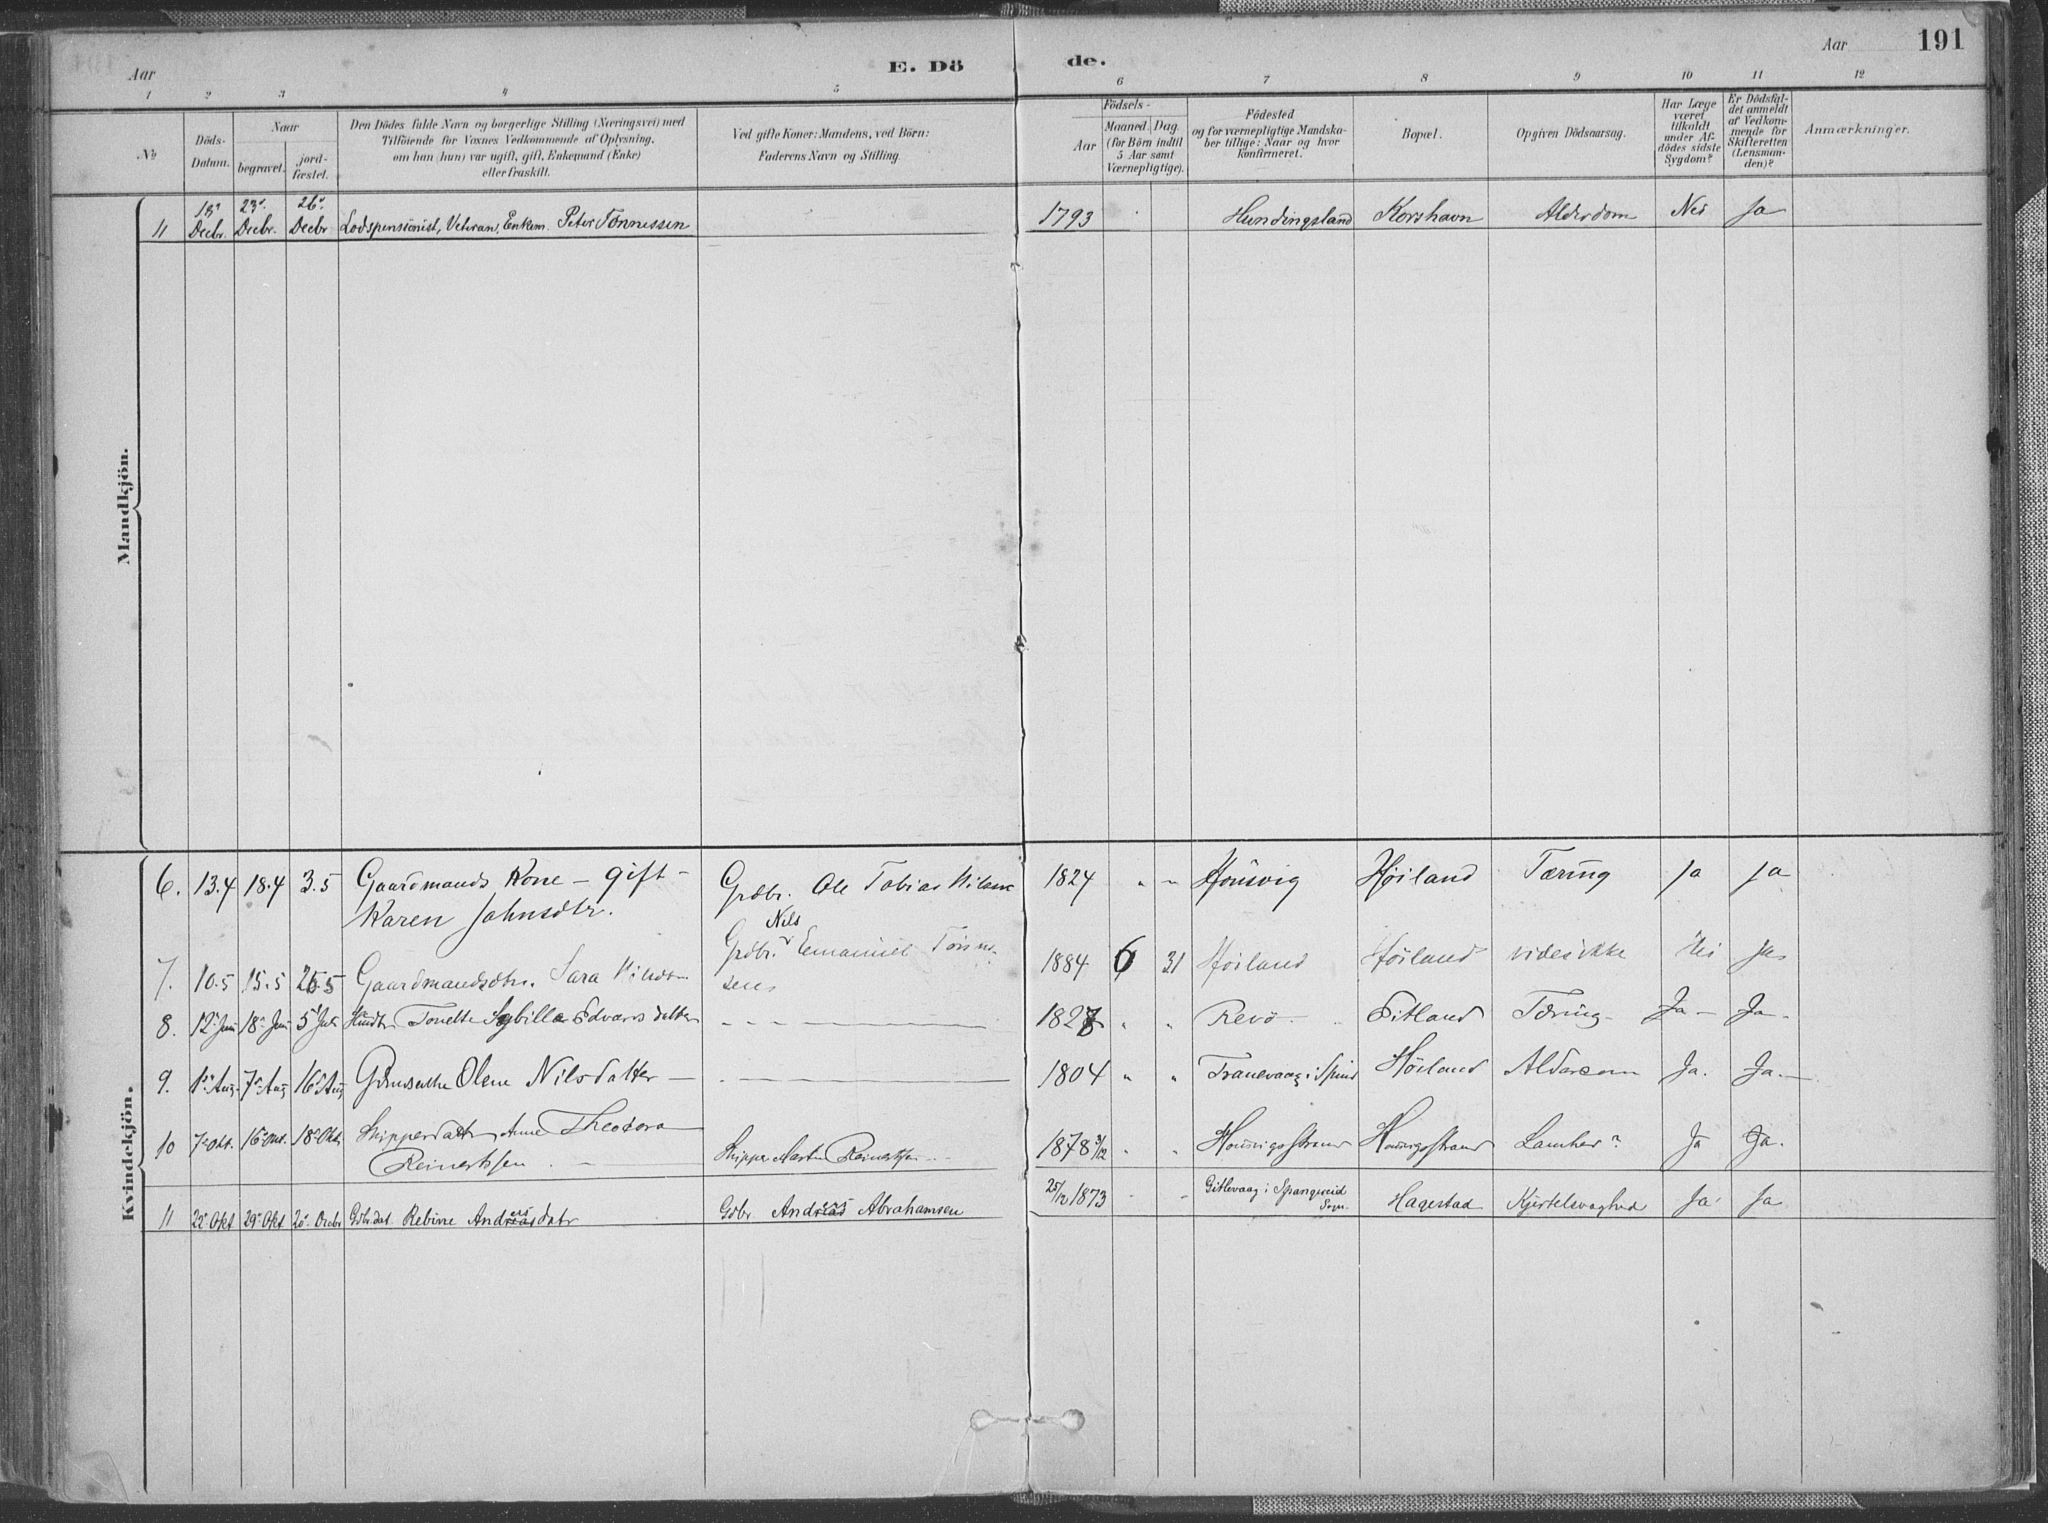 191
Aar
E. Dö
de.
Aar
1 2 3 4 5 6 7 8 9 10 11 12
№
Döds-
Datum.
Naar
begravet.
jord-
fæstet.
Den Dödes fulde Navn og borgerlige Stilling (Næringsvei) med
Tilföiende for Voxnes Vedkommende af Oplysning,
om han (hun) var ugift, gift, Enkemand (Enke)
eller fraskilt.
Ved gifte Koner: Mandens, ved Börn:
Faderens Navn og Stilling
Födsels-
Aar
Maaned. Dag.
(for Börn indtil
5 Aar samt
Værnepligtige).
Födested
og for værnepligtige Mandska-
ber tillige: Naar og hvor
konfirmeret.
Bopæl.
Opgiven Dödsaarsag.
Har Læge
været
tilkaldt
under Af-
dödes sidste
Sygdom?
Er Dödsfal-
det anmeldt
af Vedkom-
mende for
Skifteretten
(Lensman-
den)?
Anmærkninger.
Mandkjön.
11 Decbr. 23. Decbr. 26. Decbr Lodspensionist, Veteran, Enkem. Peter Tönnessen 1793 Hundingsland Korshavn Alderdom Nei Ja
Kvindekjön.
6. 13.4 18.4 3.5 Gaardmands Kone – gift – Grdbr. Ole Tobias 1824 " " Høiland Tæring ja ja
Karen Johnsdtr.
Nils
Grdbr. Emanuel
7. 10.5 15.5 Gaardmandsdtr. Sara 1884 6 31 Høiland Høiland vides ikke Nei ja
sens
8. 12 Juni 18 Juni 5 Juli Tonette Sybille Edvards datter 182 " " Revö Eitland Tæring Ja Ja
9. 1 Aug. 7 Aug 16 Aug Olene Nilsdatter 1804 " " i Spind Höiland Alderdom Ja. Ja.
10 7 Okt. 16 Okt. 18 Okt. Skipperdatter Anne Theodora Skipper Martin Reinertsen 1878 " " Ja Ja.
Reinertsen
11 22 Okt 29 Okt 20 Decbr Gdbrdat. Rebine Andreasdatr Gdbr. Andreas Abrahamsen 25/12 1873 " Gitlevaag i Spangereid Sogn. Hagestad Kjertelsvaghed Ja Ja